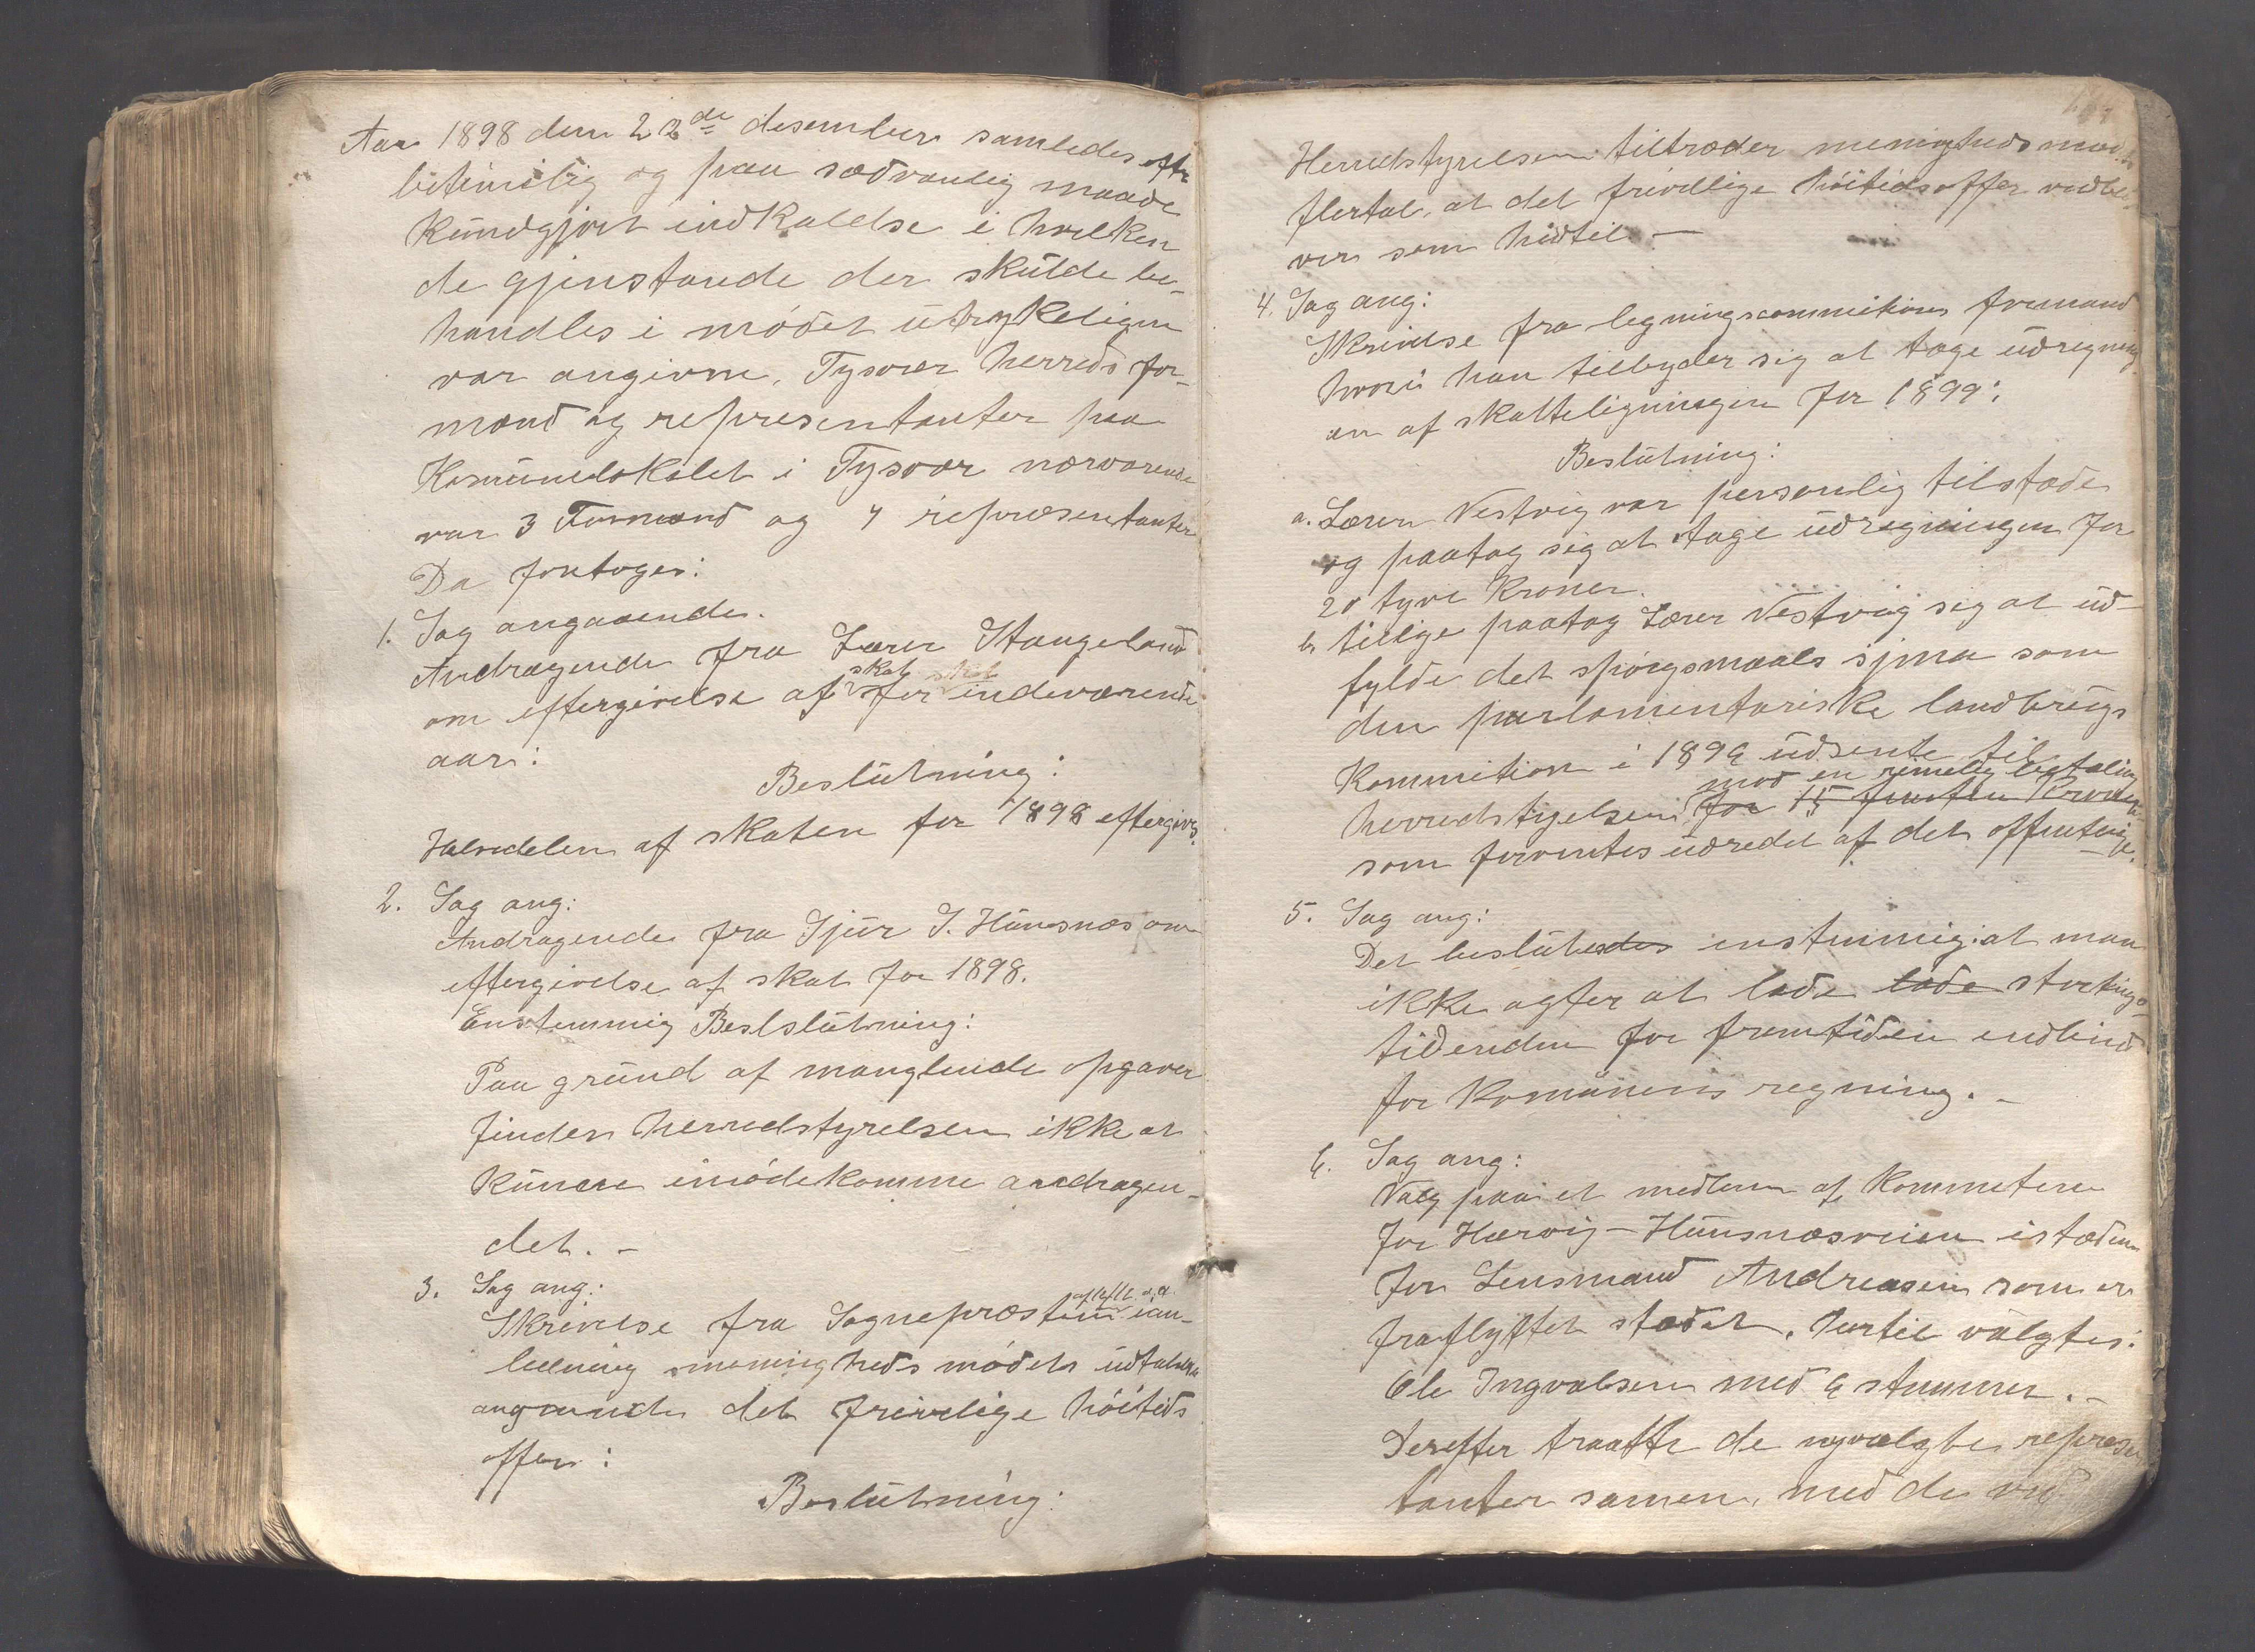 Aar 1898 den 22de desember samledes efter
betimelig og paa sædvanlig maade
kundgjort indkaldelse i hvilken
de gjenstande der skulde be-
handles i mødet utrykeligen
var angivne, Tysvær herreds for-
mænd og representanter paa
Komunelokalet i Tysvær nærværende
var 3 Formænd og 7 representanter
Da foretoges:
1. Sag angaaende.
Andragende fra Lærer Stangeland
om eftergivelse af skat for indeværende
aar:
Beslutning:
Halvdelen af skaten for 1898 eftergives.
2. Sag ang:
Andragende fra Sjur S. Hunsnæs om
eftergivelse af skat for 1898.
Enstemmig Beslslutning:
Paa grund af manglende opgaver
finder herredstyrelsen ikke at
kunne imødekomme andragen-
det. -
3. Sag ang:
Skrivelse fra Sognepræsten i an-
ledning menigheds mødets udtalelse
angaaende det frivelige høitids
offer:
Beslutning:
Herredstyrelsen tiltræder menigheds mødets
flertal, at det frivillige høitidsoffer vedbli-
ver som hidtil. -
4. Sag ang:
Skrivelse fra ligningscommitionens formand
hvori han tilbyder sig at tage udregning
en af skatteligningen for 1899:
Beslutning:
a. Lærer Vestvig var personlig tilstæde
og paatog sig at tage udregningen for
20 tyve kroner.
b. tillige paatog Lærer Vestvig sig at ud-
fylde det spørgsmaals sjma som
den parlamentariske landbrugs
Kommition i 1899 udsente til
mod en rimelig betaling
herredstyelsen for 15 femten Kroner
som forventes udredet af det offentlige.
5. Sag ang:
Det beslutedes enstemmig: at man
ikke agter at lade lade stortings-
tidenden for fremtiden indbind
for Komunens regning. -
6. Sag ang:
Valg paa et medlem af Kommiteen
for Hervig - Hunsnæsveien istæden
for Lensmand Andreasen som er
fraflyttet stædet. Hertil valgtes:
Ole Ingvalsen med 6 stemmer. -
Derefter traatte de nyvalgte represen
tanter samen, med de ved